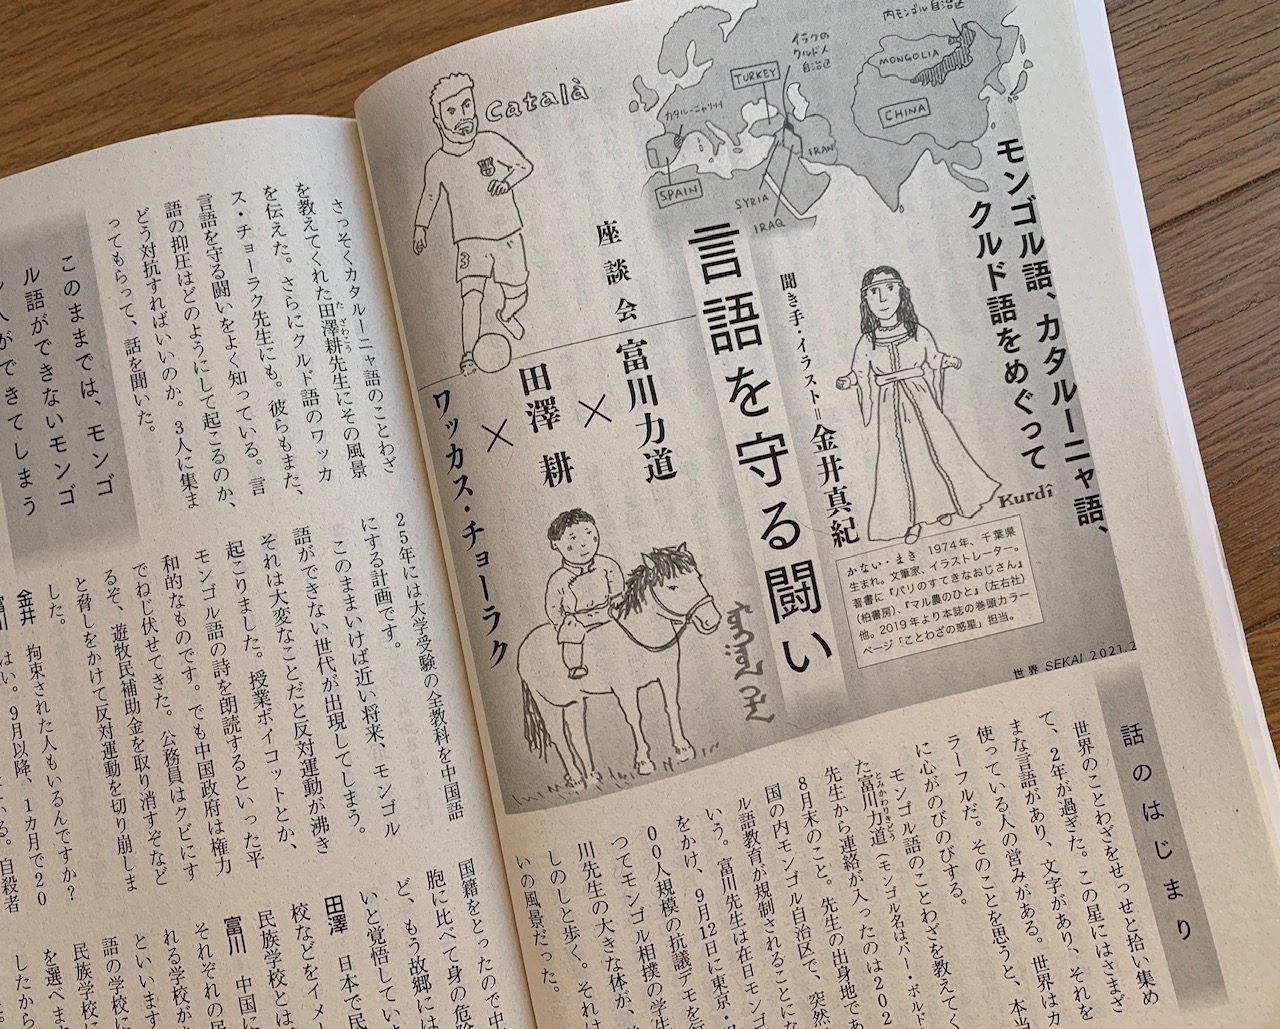 内モンゴル自治区
イラクの
クルド人
自治区
MONGOLIA
CHINA
TURKEY
カタルーニャ州
SPAIN
IRAN
SYRIA
IRAQ
català
Kurdî
モンゴル語、カタルーニャ語、
クルド語をめぐって
言語を守る闘い
聞き手・イラスト=金井真紀
座談会
富川力道
×
田澤 耕
×
ワッカス・チョーラク
かない・まき 1974年、千葉県
生まれ。文筆家、イラストレーター。
著書に『パリのすてきなおじさん』
(柏書房)、『マル農のひと』(左右社)
他。2019年より本誌の巻頭カラー
ページ「ことわざの惑星」担当。
世界 SEKAI 2021.2
話のはじまり
世界のことわざをせっせと拾い集め
て、2年が過ぎた。この星にはさまざ
まな言語があり、文字があり、それを
使っている人の営みがある。世界はカ
ラーフルだ。そのことを思うと、本当
に心がのびのびする。
モンゴル語のことわざを教えてく
た富川力道(モンゴル名はバー・ボルド
先生から連絡が入ったのは202
8月末のこと。先生の出身地であ
国の内モンゴル自治区で、突然
ル語教育が規制されることにな
いう。富川先生は在日モンゴ
をかけ、9月12日に東京・
00人規模の抗議デモを
つてモンゴル相撲の学生
川先生の大きな体が、
しのしと歩く。それは
いの風景だった。
さっそくカタルーニャ語のことわざ
を教えてくれた田澤耕先生にその風景
を伝えた。さらにクルド語のワッカ
ス・チョーラク先生にも。彼らもまた、
言語を守る闘いをよく知っている。言
語の抑圧はどのようにして起こるのか、
どう対抗すればいいのか。3人に集ま
ってもらって、話を聞いた。
このままでは、モンゴ
ル語ができないモンゴ
ル人ができてしまう
25年には大学受験の全教科を中国語
にする計画です。
このままいけば近い将来、モンゴル
語ができない世代が出現してしまう。
それは大変なことだと反対運動が沸き
起こりました。授業ボイコットとか、
モンゴル語の詩を朗読するといった平
和的なものです。でも中国政府は権力
でねじ伏せてきた。公務員はクビにす
るぞ、遊牧民補助金を取り消すぞなど
と脅しをかけて反対運動を切り崩しま
した。
金井 拘束された人もいるんですか?
富川 はい。9月以降、1カ月で20
自殺者
国籍をとったので中
胞に比べて身の危険
ど、もう故郷には
いと覚悟してい
田澤 日本で民
校などをイメー
民族学校とは
富川 中国に
それぞれの民
れる学校が
といいます
語の学校に
を選べま
民族学校に
したから